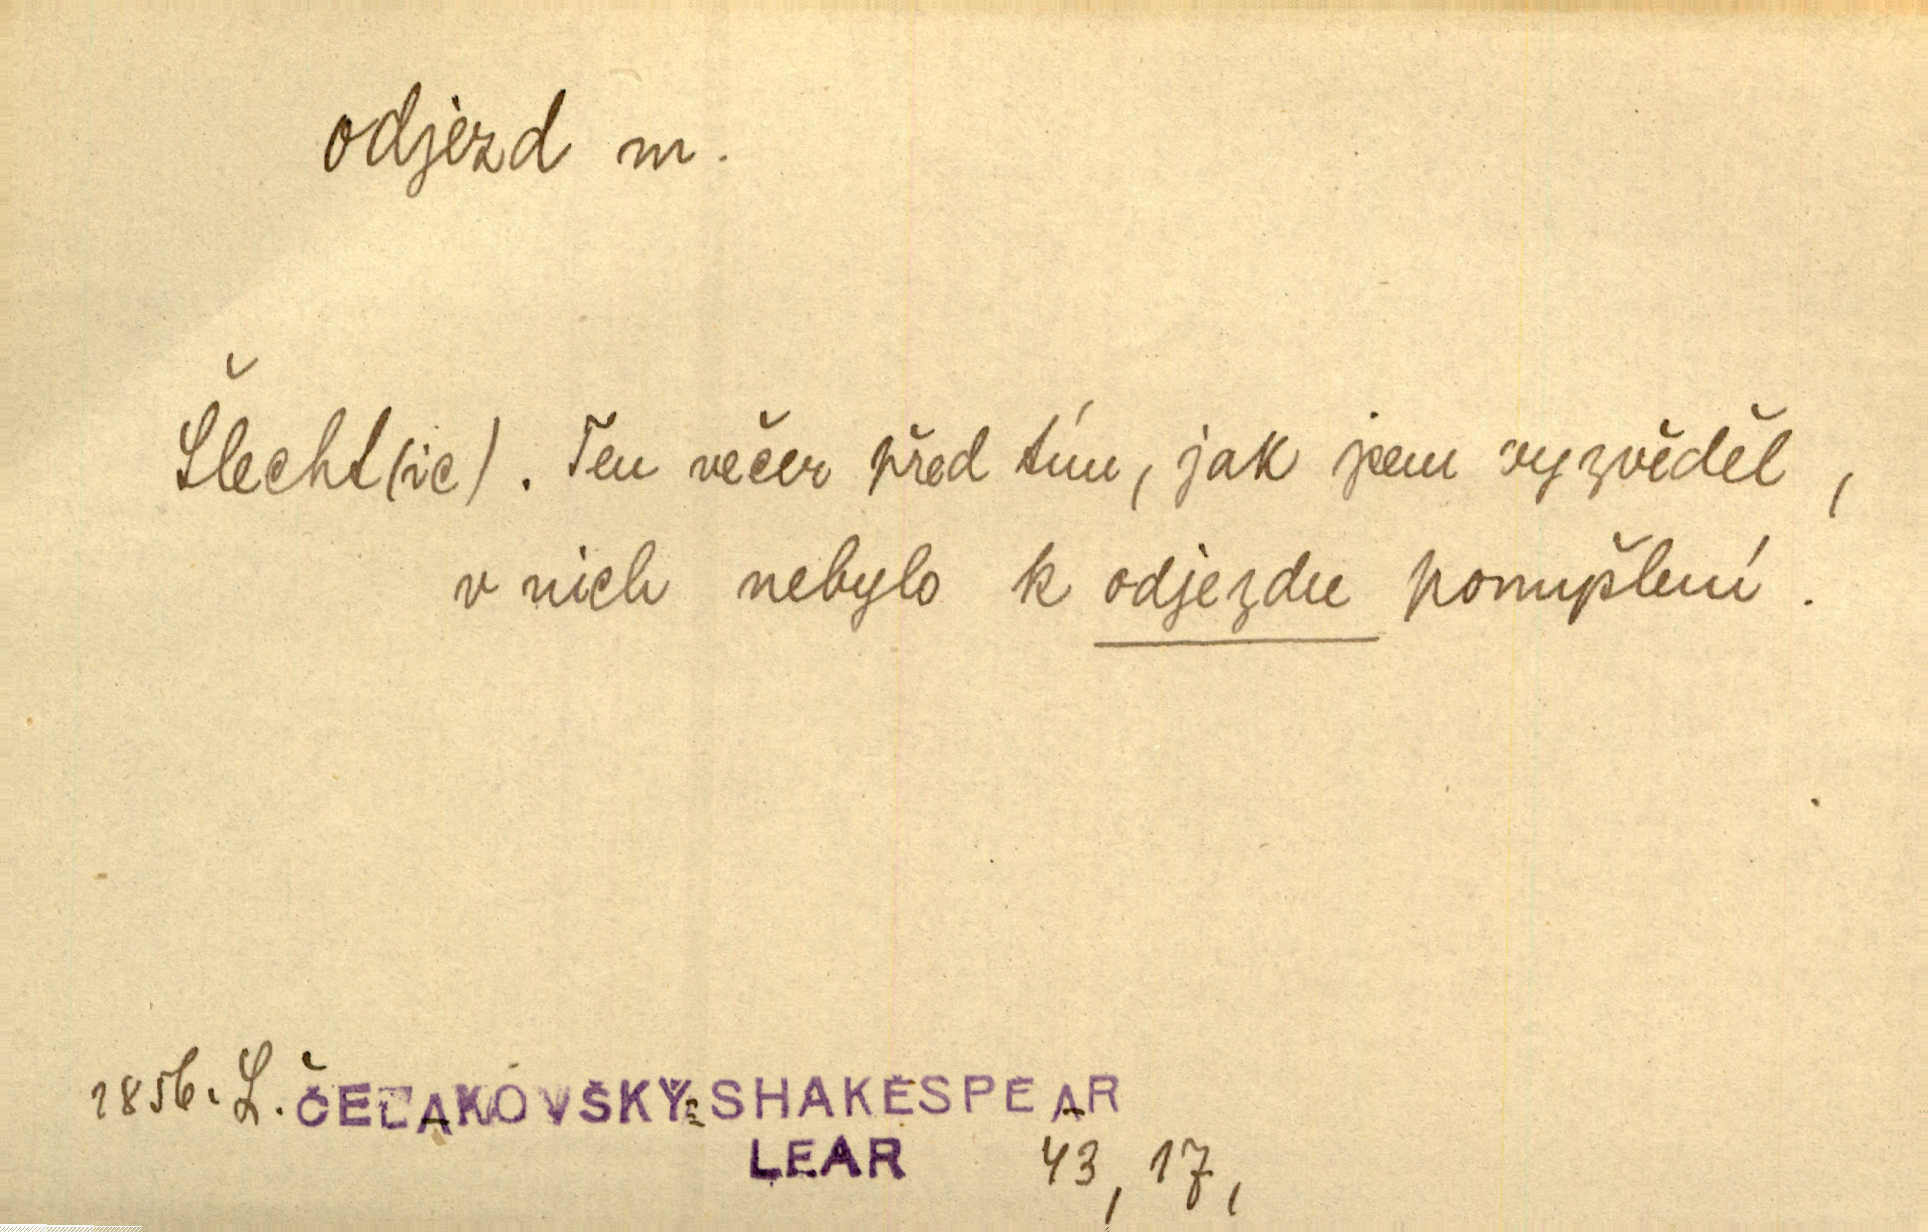 odjezd m.
Šlecht(ic). Ten večer před tím, jak jsem vyzvěděl,
v nich nebylo k odjezdu pomyšlení.
1856. L. ČELAKOVSKÝ=SHAKESPEAR
LEAR 43, 17,